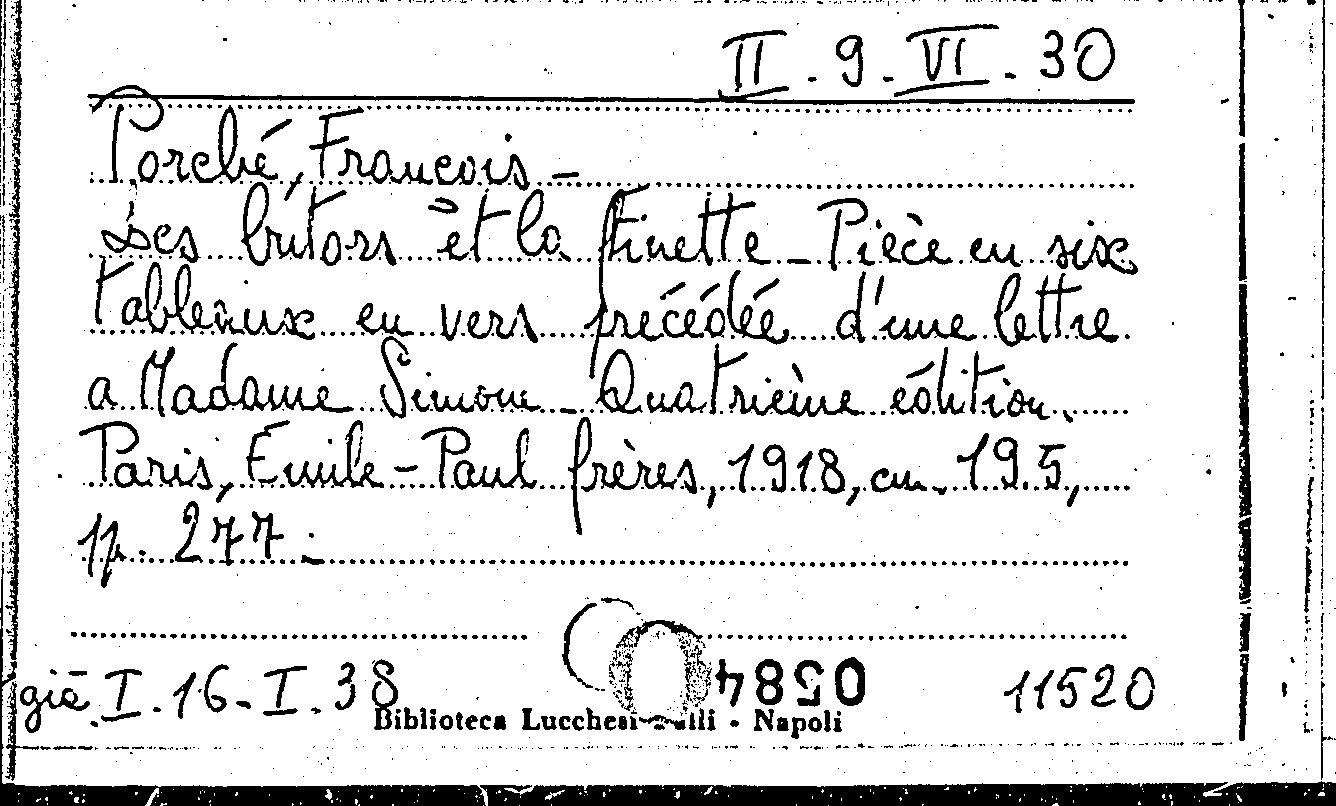 II . 9 . VI . 30
Porché, Francois -
Les butors et la Finette - Pièce en six
tableaux en vers précédée d'une lettre
a Madame Simone - Quatrième édition.
Paris, Émile-Paul frères, 1918, cm. 19.5,
pp. 277.
già I . 16 - I . 38
0584
11520
Biblioteca Lucchesi - Napoli